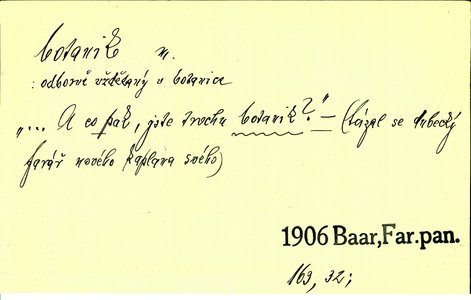 botanik m.
: odborně vzdělaný v botanice
„... A co pak, jste trochu botanik?" — (tázal se dubecký
farář nového kaplana svého)
1906 Baar, Far.pan.
163, 32;